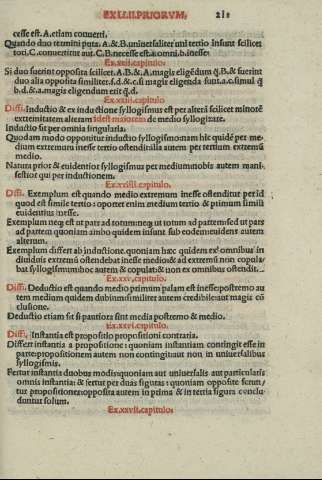 EX LI.II.PRIORVM. 211
cesse est. A. etiam conuerti.
Quando duo termini puta. A. & B. uniuersaliter uni tertio insunt scilicet
toti. C. conuertitur aut. C. B. necesse est. a. omni. b. inesse.
Ex.xxii.capitulo.
Si duo fuerint opposita scilicet. A. B. &. A. magis eligēdum q̄. B. & fuerint
duo alia opposita similiter. s. d. &. c. si magis eligenda sunt. a. c. simul q̄
b. d. &. a. magis eligendum erit q̄. d.
Ex.xxiii.capitulo
Diffi. Inductio & ex inductione syllogismus est per alterā scilicet minorē
extremitatem alteram idest maiorem de medio syllogizare.
Inductio sit per omnia singularia.
Quodam modo opponitur inductio syllogismo nam hic quidē per me-
dium extremum inesse tertio ostendit illa autem per tertium extremū
medio.
Natura prior & euidentior syllogismus per medium nobis autem mani-
festior qui per inductionem.
Ex.xxiiii.capitulo.
Diffi. Exemplum est quando medio extremum inesse ostenditur per id
quod est simile tertio: oportet enim medium tertio & primum simili
euidentius inesse.
Exemplum neq; est ut pars ad totum: neq; ut totum ad partem sed ut pars
ad partem quoniam ambo quidem insunt sub eodem euidens autem
alterum.
Exemplum differt ab inductione. quoniam hæc quidem ex omnibus in
diuiduis extremū ostendebat inesse medio: & ad extremū non copula-
bat syllogismum: hoc autem & copulat: & non ex omnibus ostendit.
Ex.xxv.capitulo.
Diffi. Deductio est quando medio primum palam est inesse: postremo au
tem medium quidem dubium: similiter autem credibile: aut magis cō
clusione.
Deductio etiam sit si pautiora sint media postremo & medio.
Ex.xxvi.capitulo.
Diffi. Instantia est propositio propositioni contraria.
Differt instantia a propositione: quoniam instantiam contingit esse in
parte: propositionem autem non contingit aut non in uniuersalibus
syllogismis.
Fertur instantia duobus modis quoniam aut uniuersalis aut particularis
omnis instantia: & fertur per duas figuras: quoniam opposite ferun/
tur propositioni: opposita autem in prima & in tertia figura conclu
duntur solum.
Ex.xxvii.capitulo: